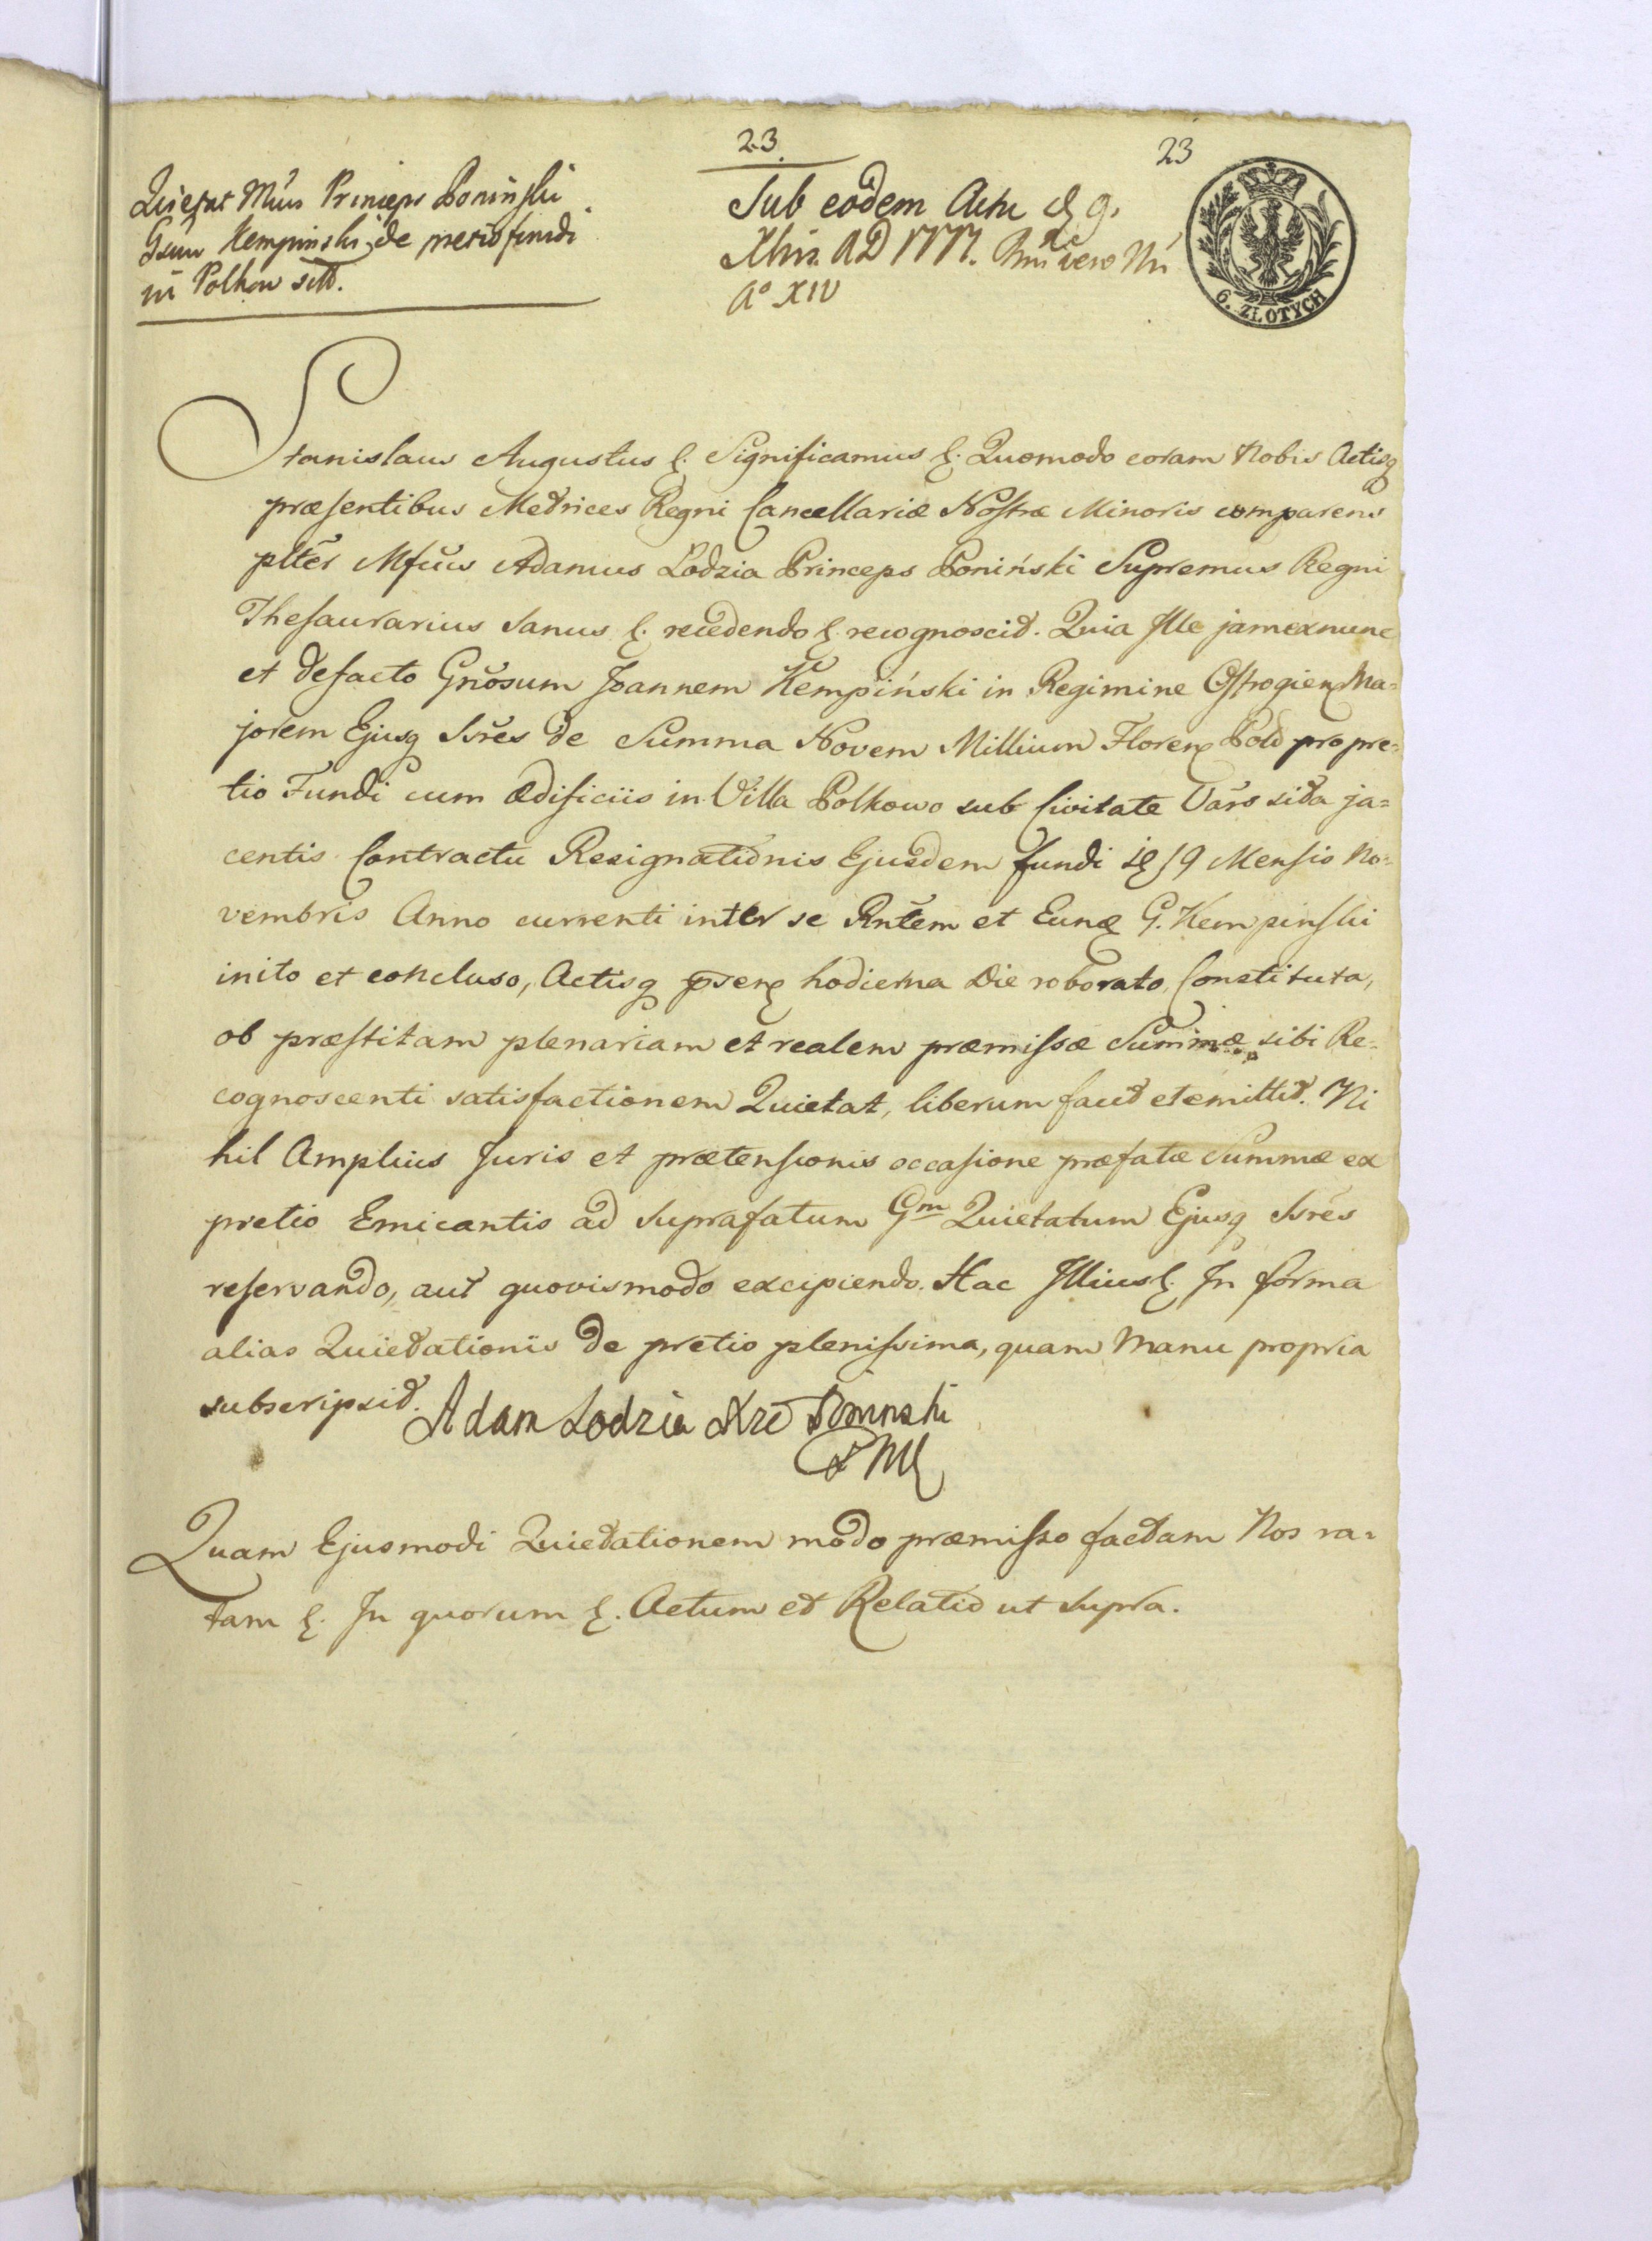 23
23
Quietat Mcus Princeps Poninski
Gsum Kempinski de pretio fundi
in Polkow sitt.
Sub eodem Actu d 9.
Xbris AD 1777. Rni vero Nri
Ao XIV
6. ZŁOTYCH
Stanislaus Augustus &. Significamus &. Quomodo coram Nobis Actisq
præsentibus Metrices Regni Cancellariæ Nostræ Minoris comparens
plter Mfcus Adamus Lodzia Princeps Poniński Supremus Regni
Thesaurarius sanus &. recedendo &. recognoscit. Quia Ille jam ex nunc
et defacto Gnosum Joannem Kempiński in Regimine Ostrogien Ma=
jorem Ejusq Ssres de Summa Novem Millium Floren Pold pro pre=
tio Fundi cum ædificiis in Villa Polkowo sub Civitate Vars sita ja=
centis Contractu Resignationis Ejusdem fundi 19 Mensis No=
vembris Anno currenti inter se Rntem et Eund G. Kempinski
inito et concluso, Actisq psen hodierna Die roborato, Constituta,
ob præstitam plenariam et realem præmissæ Summæ sibi Re=
cognoscenti satisfactionem Quietat, liberum facit et emittit. Ni
hil Amplius Juris et prætensionis occasione præfatæ Summæ ex
pretio Emicantis ad suprafatum Gm Quietatum Ejusq Ssres
reservando, aut quovismodo excipiendo. Hac Illius &. In forma
alias Quietationis de pretio plenissima, quam Manu propria
subscripsit. Adam Lodzia Xze Poninski
Quam Ejusmodi Quietationem modo præmisso factam Nos ra=
tam &. In quorum &. Actum et Relatio ut supra.